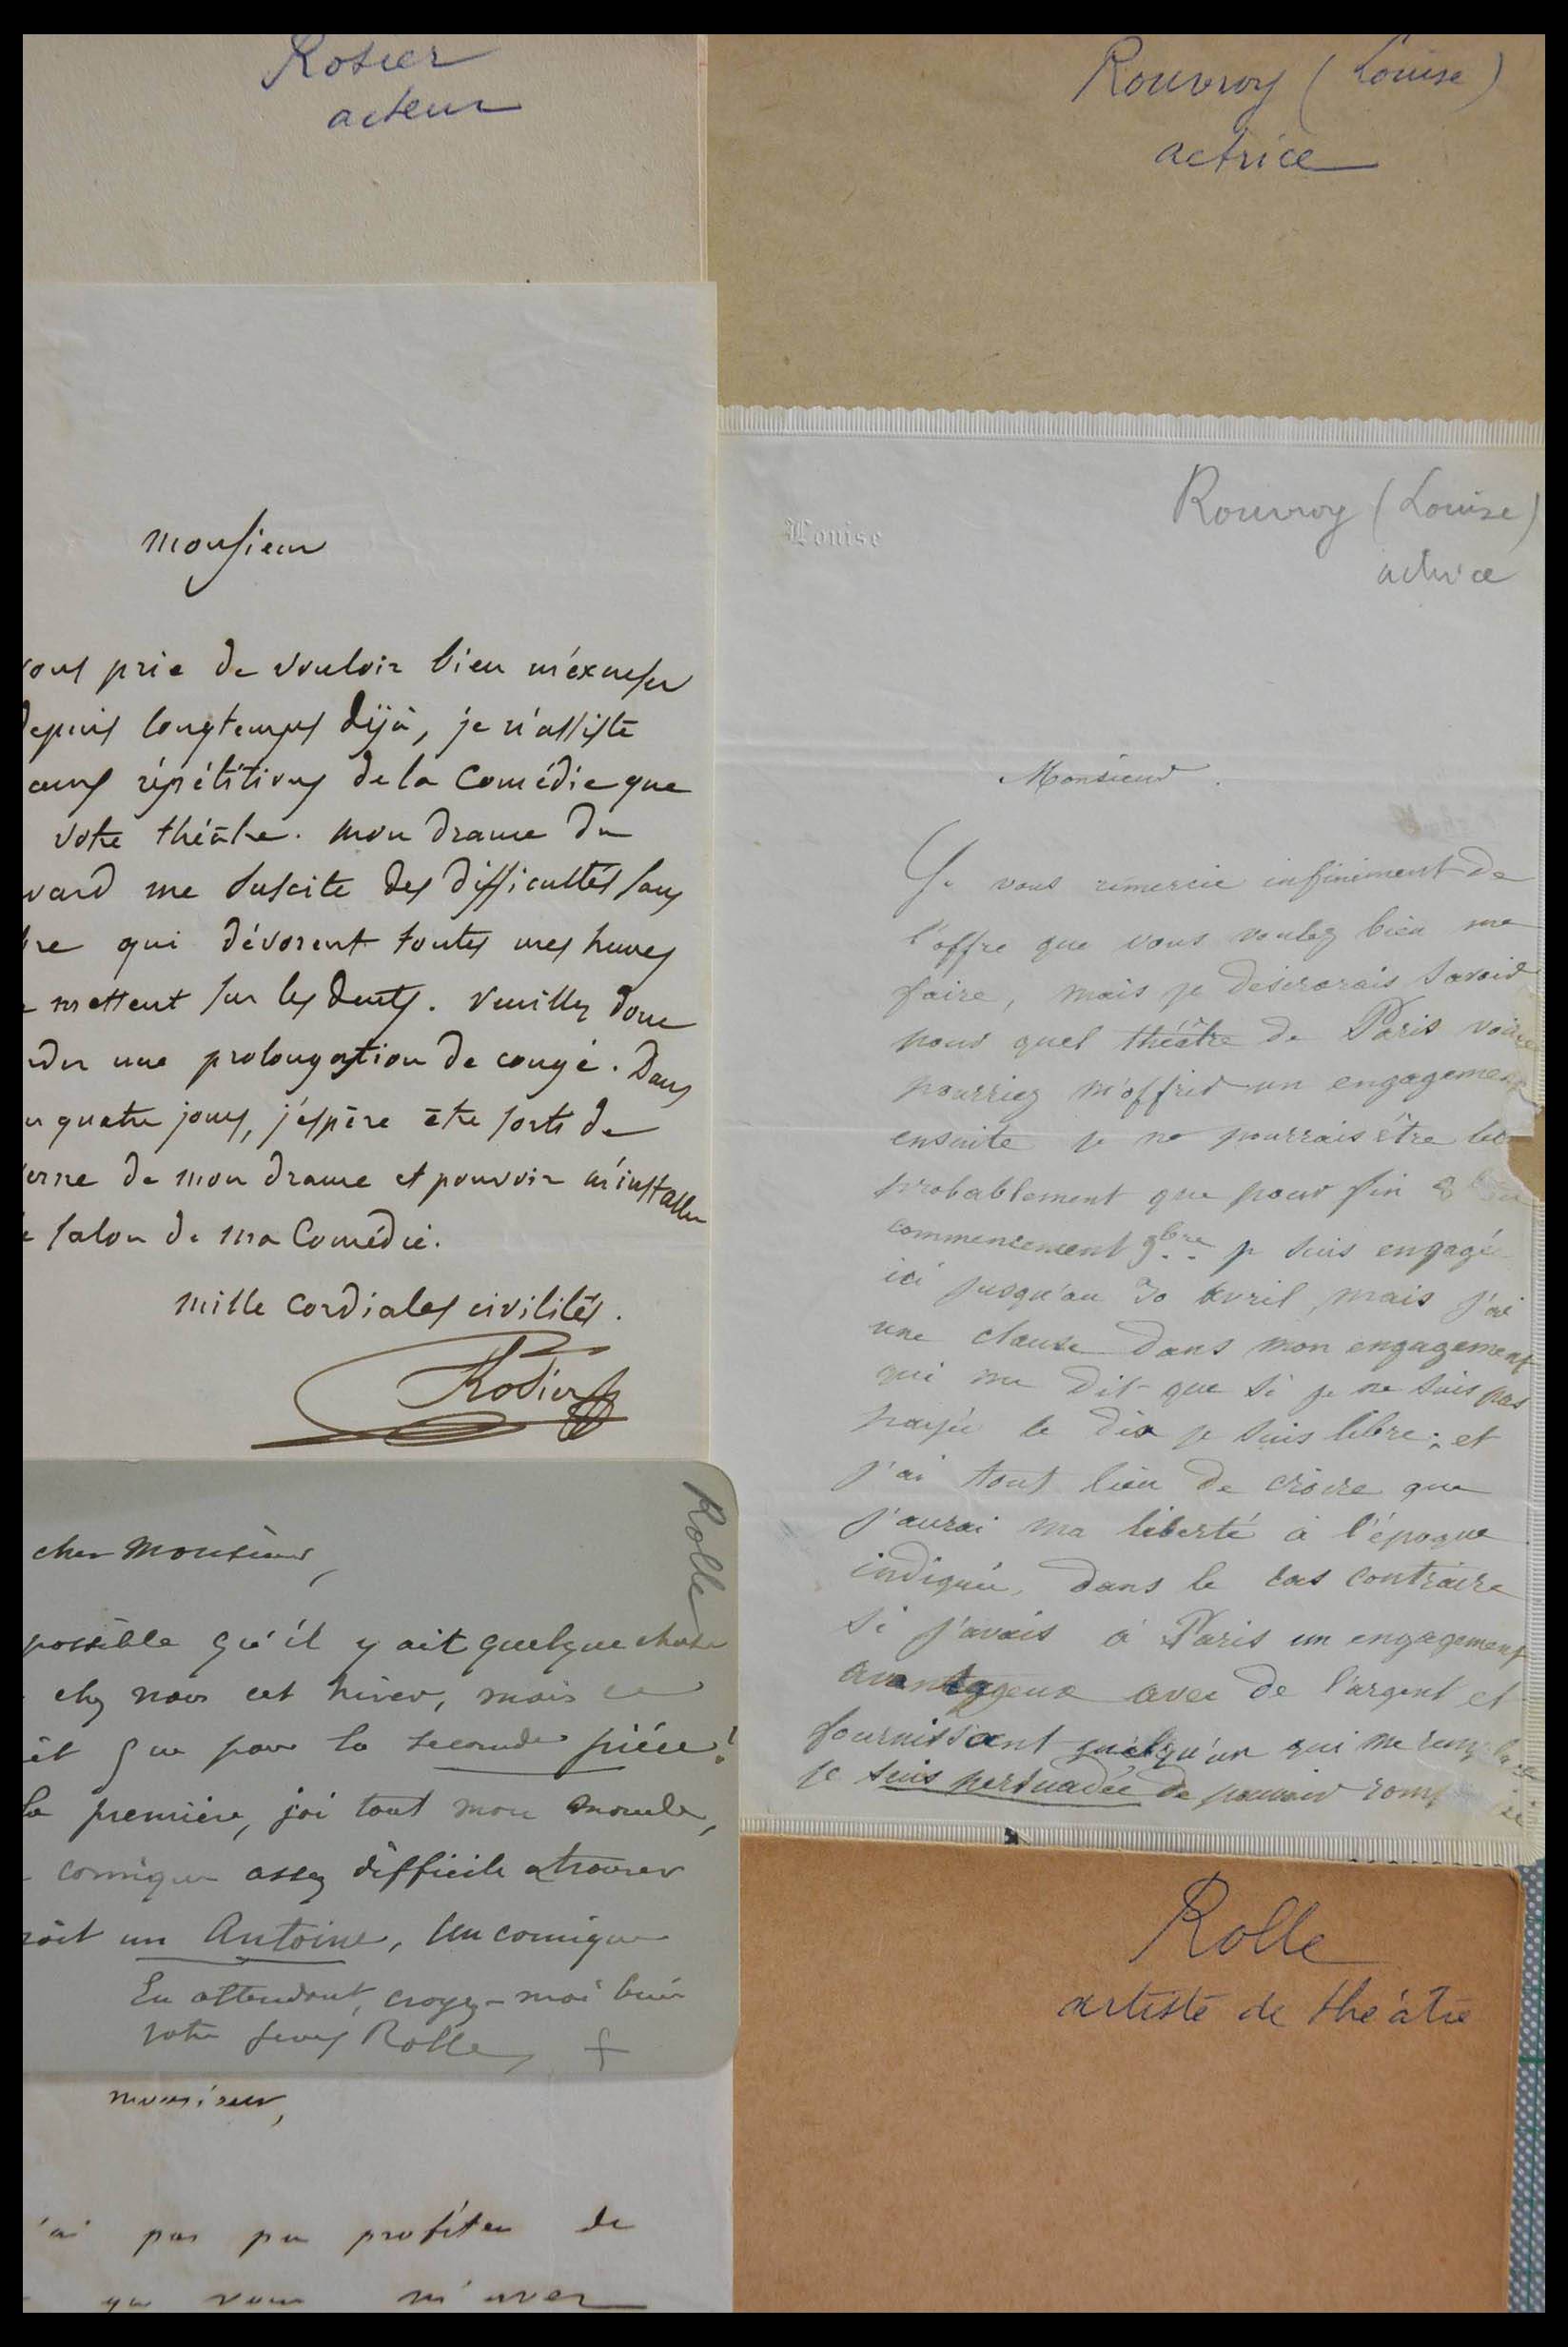 Rosier
acteur
Monsieur
vous prie de vouloir bien m'excuser
depuis longtemps déjà, je n'assiste
aux répétitions de la Comédie que
votre théâtre. Mon drame du
vard me suscite des difficultés sans
bre qui dévorent toutes mes heures
mettent sur les dents. Veuillez donc
rder une prolongation de congé. Dans
ou quatre jours, j'espère être sorti de
verne de mon drame et pouvoir m'installer
salon de ma Comédie.
mille cordiales civilités.
Rosier
Rouvroy (Louise)
actrice
Louise
Rouvroy (Louise)
actrice
Monsieur.
Je vous remercie infiniment de
l'offre que vous voulez bien me
faire, mais je désirerais savoir
pour quel théâtre de Paris vous
pourriez m'offrir un engagement
ensuite je ne pourrais être
probablement que pour fin 8
commencement 9bre je suis engagée
ici jusqu'au 30 avril, mais j'ai
une clause dans mon engagement
qui me dit que si je ne suis pas
payée le dix je suis libre; et
j'ai tout lieu de croire que
j'aurai ma liberté à l'époque
indiquée, dans le cas contraire
si j'avais à Paris un engagement
avantageux avec de l'argent et
fournissant quelqu'un qui me remplace
je suis persuadée de pouvoir romp ici
Rolle
cher Monsieur,
possible qu'il y ait quelque chose
chez nous cet hiver, mais ce
que pour la seconde pièce!
la première, j'ai tout mon monde,
comique assez difficile a trouver
roit un Antoine, Un comique
En attendant, croyez-moi bien
votre Rolle
Rolle
artiste de théâtre
Monsieur,
'ai pas pu profiter de
que vous m'avez